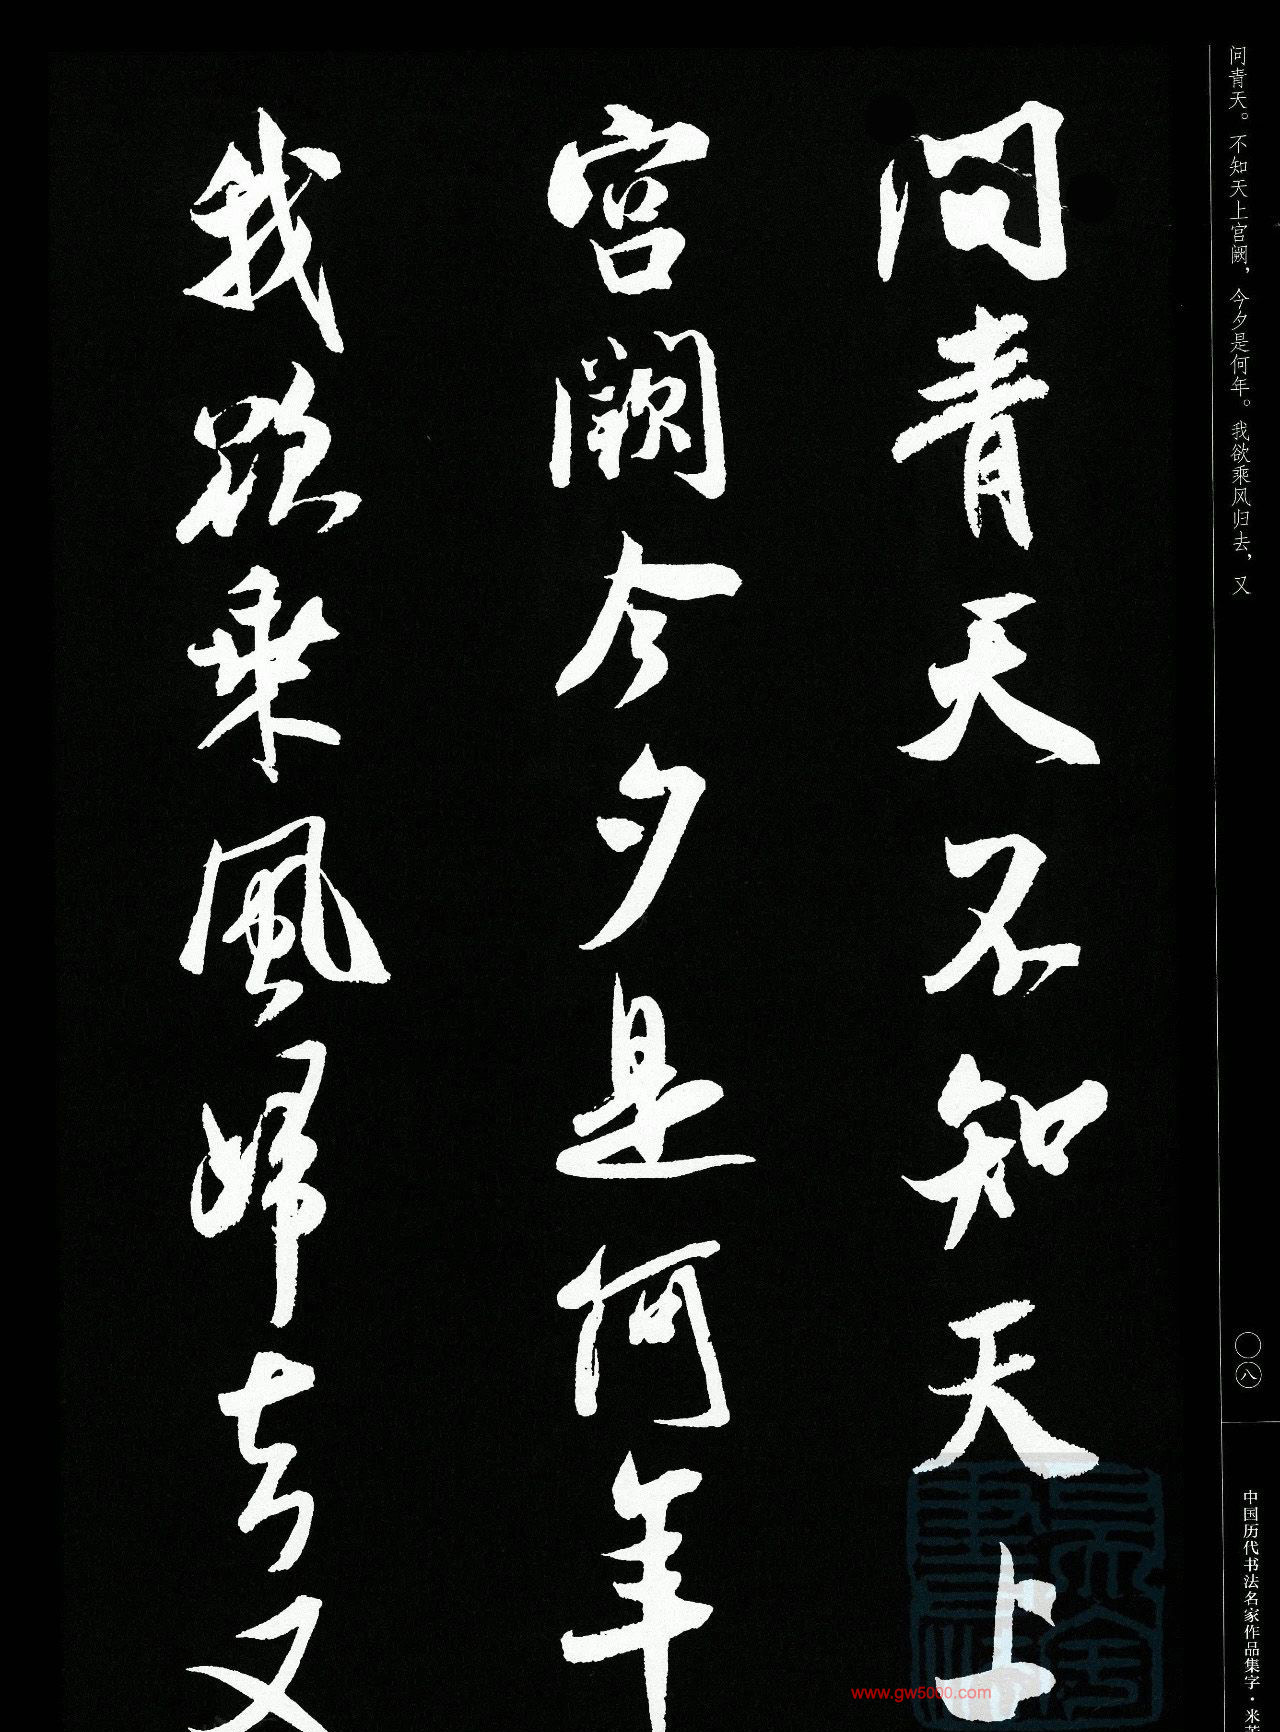 问青天。不知天上宫阙，今夕是何年。我欲乘风归去，又
問青天不知天上
宮闕今夕是何年
我欲乘風歸去又
〇八
中国历代书法名家作品集字·米芾
www.gw5000.com